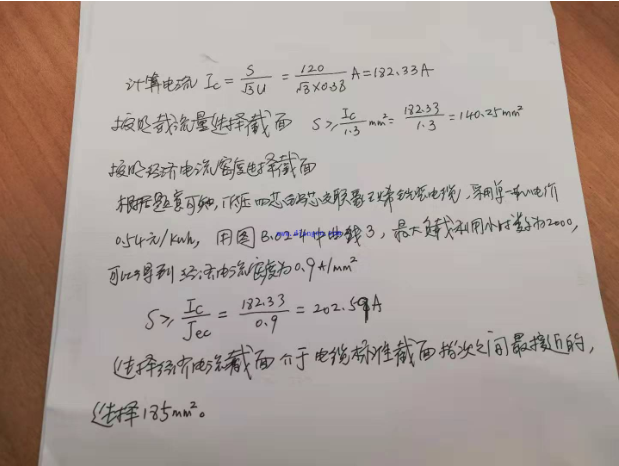 计算电流 Ic = S/√3U = 120/√3×0.38 A = 182.33A
按照载流量选择截面 S≥ Ic/1.3 mm² = 182.33/1.3 = 140.25mm²
按照经济电流密度选择截面
根据题意可知,低压四芯铝芯交联聚乙烯绝缘电缆,采用单一制电价
0.54元/kWh, 用图B.0.2-4中曲线3, 最大负载利用小时数为2000,
可以得到经济电流密度为0.9A/mm²
S≥ Ic/Jec = 182.33/0.9 = 202.59A
选择经济电流截面介于电缆标准截面档次之间最接近的,
选择185mm²。